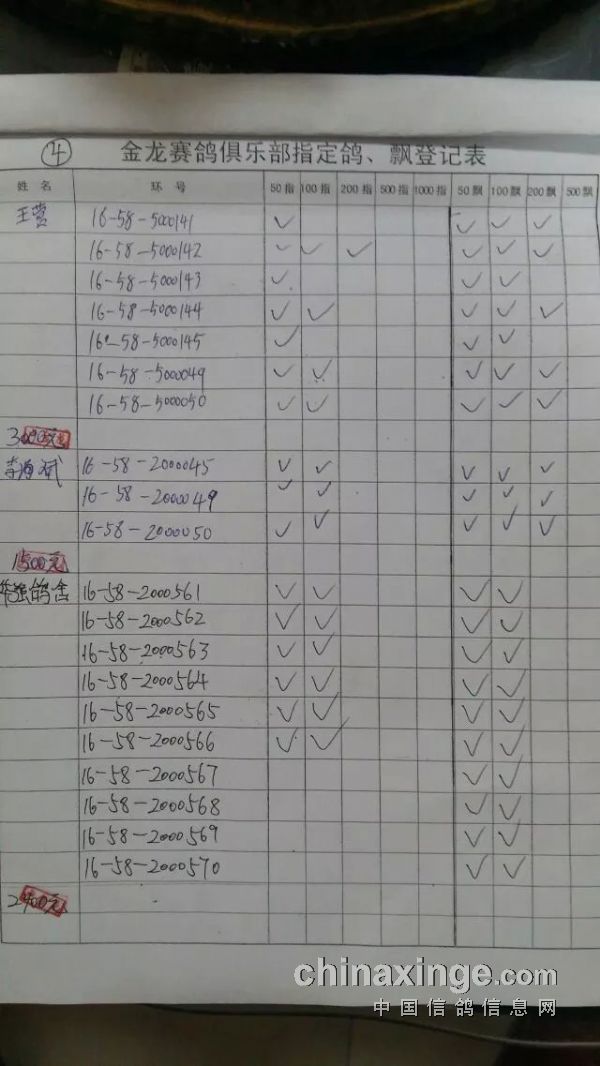 ④ 金龙赛鸽俱乐部指定鸽、飘登记表
姓名 环号 50指 100指 200指 500指 1000指 50飘 100飘 200飘 500飘
王营 16-58-5000141 ✓ ✓ ✓ ✓
16-58-5000142 ✓ ✓ ✓ ✓ ✓ ✓
16-58-5000143 ✓ ✓ ✓
16-58-5000144 ✓ ✓ ✓ ✓ ✓
16-58-5000145 ✓ ✓ ✓
16-58-5000049 ✓ ✓ ✓ ✓ ✓
16-58-5000050 ✓ ✓ ✓ ✓ ✓
元
16-58-2000045 ✓ ✓ ✓ ✓ ✓
16-58-2000049 ✓ ✓ ✓ ✓ ✓
16-58-2000050 ✓ ✓ ✓ ✓ ✓
1500元
华强鸽舍 16-58-2000561 ✓ ✓ ✓ ✓
16-58-2000562 ✓ ✓ ✓ ✓
16-58-2000563 ✓ ✓ ✓ ✓
16-58-2000564 ✓ ✓ ✓ ✓
16-58-2000565 ✓ ✓ ✓ ✓
16-58-2000566 ✓ ✓ ✓ ✓
16-58-2000567 ✓ ✓
16-58-2000568 ✓ ✓
16-58-2000569 ✓ ✓
16-58-2000570 ✓ ✓
2400元
chinaxinge.com
中国信鸽信息网